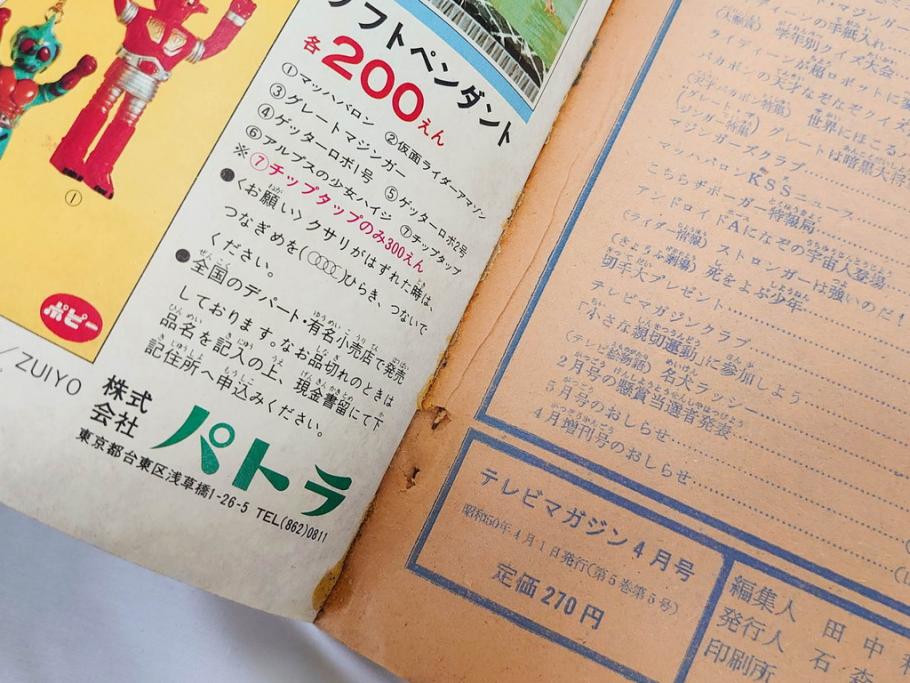 ソフトペンダント
各200えん
①マッハバロン ②仮面ライダーマソン
③グレートマジンガー
④ゲッターロボ1号 ⑤ゲッターロボ2号
⑥アルプスの少女ハイジ ⑦チップタップ
※⑦チップタップのみ300えん
●〈お願い〉クサリがはずれた時は、
つなぎめを()ひらき、つないで
ください。
●全国のデパート・有名小売店で発売
しております。なお品切れのときは
品名を記入の上、現金書留にて下
記住所へ申込みください。
①
ポピー
/ ZUIYO
株式会社 パトラ
東京都台東区浅草橋1-26-5 TEL(862)0811
ディーンの手紙入れ
(大懸賞) 学年別クイズ大会
ライディーンが超ロボットに変
バカボンの天才なぞなぞクイズ
(天才バカボン特報) 世界にほこるバ
(グレートマジンガー特報) グレートは暗黒大将
マジンガーズクラブ
マッハバロンKSSニュース
こちらザボーガー特報局
アンドロイドAになぞの宇宙人登場
(ライダー情報) ストロンガーは強いのだ!
(きょうふ劇場) 死をよぶ少年
切手大プレゼント
テレビマガジンクラブ
「小さな親切運動」に参加しよう
(テレビ絵物語) 名犬ラッシー
2月号の懸賞当選者発表
5月号のおしらせ
4月増刊号のおしらせ
テレビマガジン4月号
昭和50年4月1日発行(第5巻第5号)
定価270円
編集人 田中
発行人 石森
印刷所